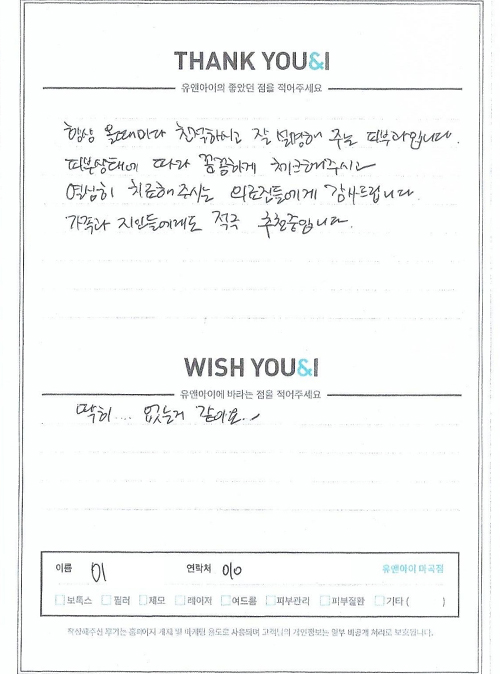 THANK YOU&I
유앤아이의 좋았던 점을 적어주세요
항상 올때마다 친절하시고 잘 설명해 주는 피부과입니다.
피부상태에 따라 꼼꼼하게 체크해주시고
열심히 치료해주시는 의료진들에게 감사드립니다.
가족과 지인들에게도 적극 추천중입니다.
WISH YOU&I
유앤아이에 바라는 점을 적어주세요
딱히... 없는거 같아요..
이름 이 연락처 010 유앤아이 마곡점
보톡스 필러 제모 레이저 여드름 피부관리 피부질환 기타 ( )
작성해주신 후기는 홈페이지 게재 및 마케팅 용도로 사용되며 고객님의 개인정보는 일부 비공개 처리로 보호됩니다.